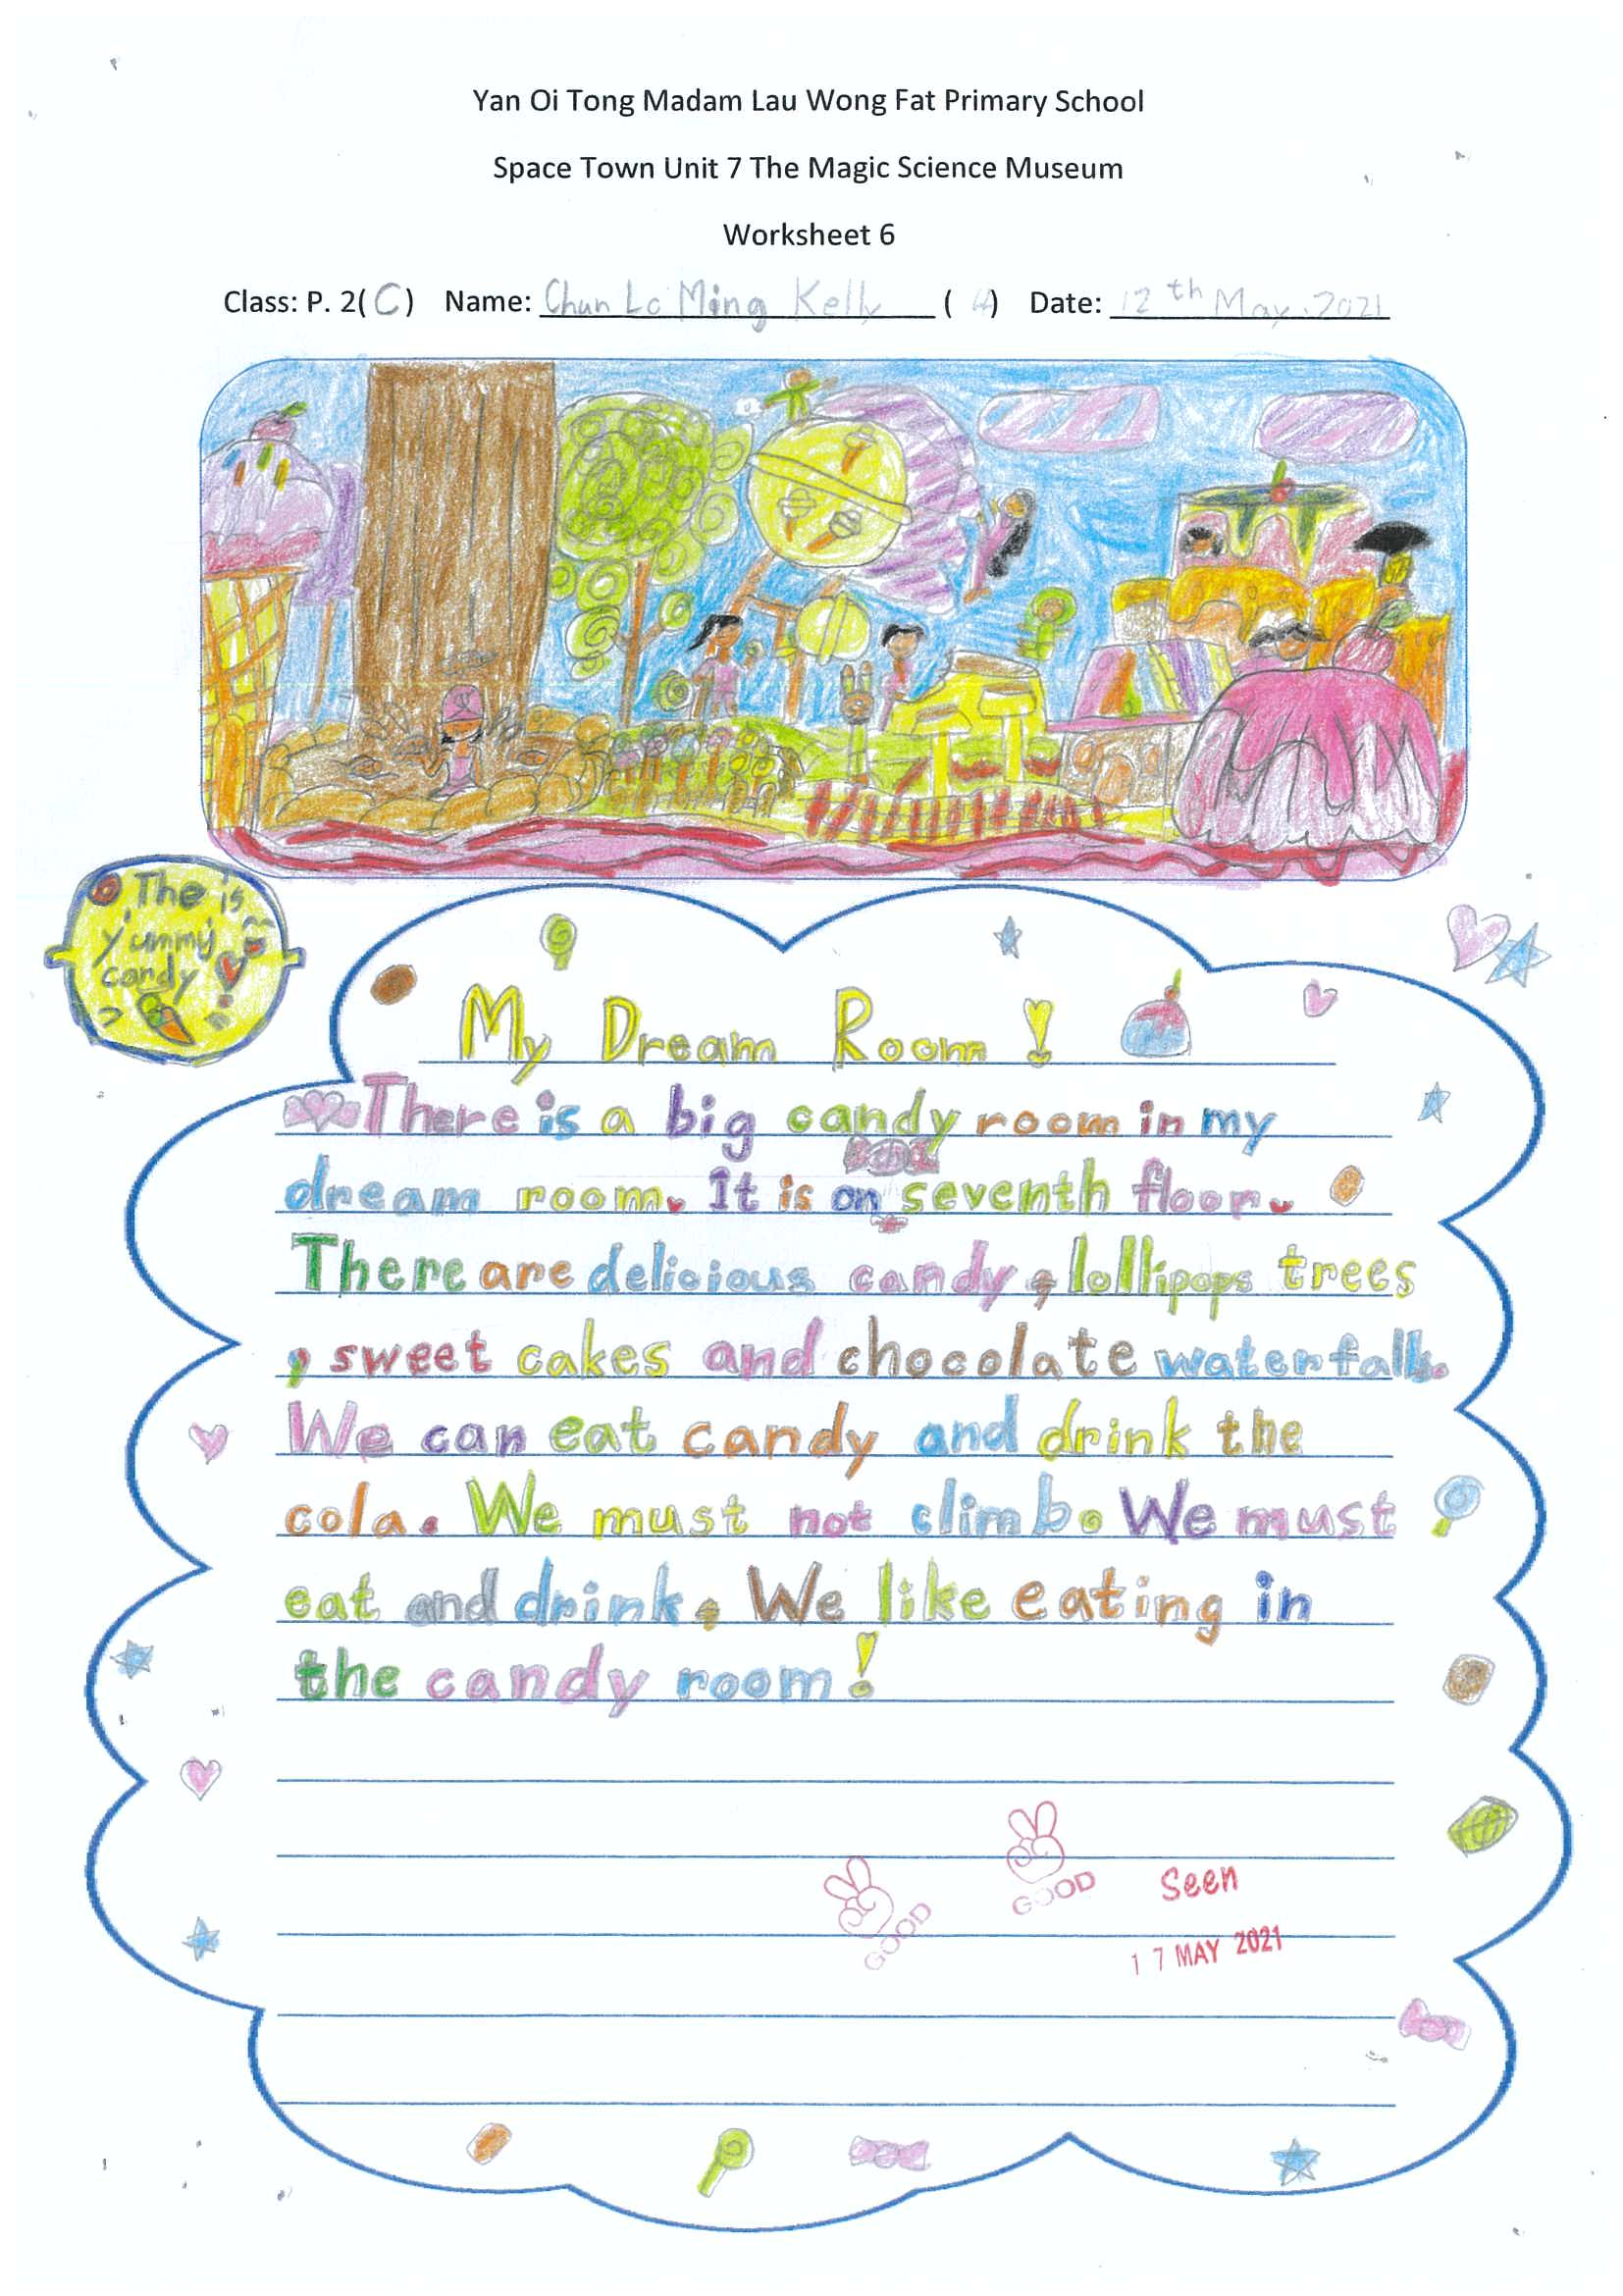 Yan Oi Tong Madam Lau Wong Fat Primary School
Space Town Unit 7 The Magic Science Museum
Worksheet 6
Class: P. 2(C) Name: Chun Lo Ming Kelly ( ) Date: 12th May.2021
The is
yummy
candy
My Dream Room !
There is a big candy room in my
dream room. It is on seventh floor.
There are delicious candy, lollipops trees
, sweet cakes and chocolate waterfalls.
We can eat candy and drink the
cola. We must not climb. We must
eat and drink. We like eating in
the candy room!
GOOD
GOOD
Seen
17 MAY 2021